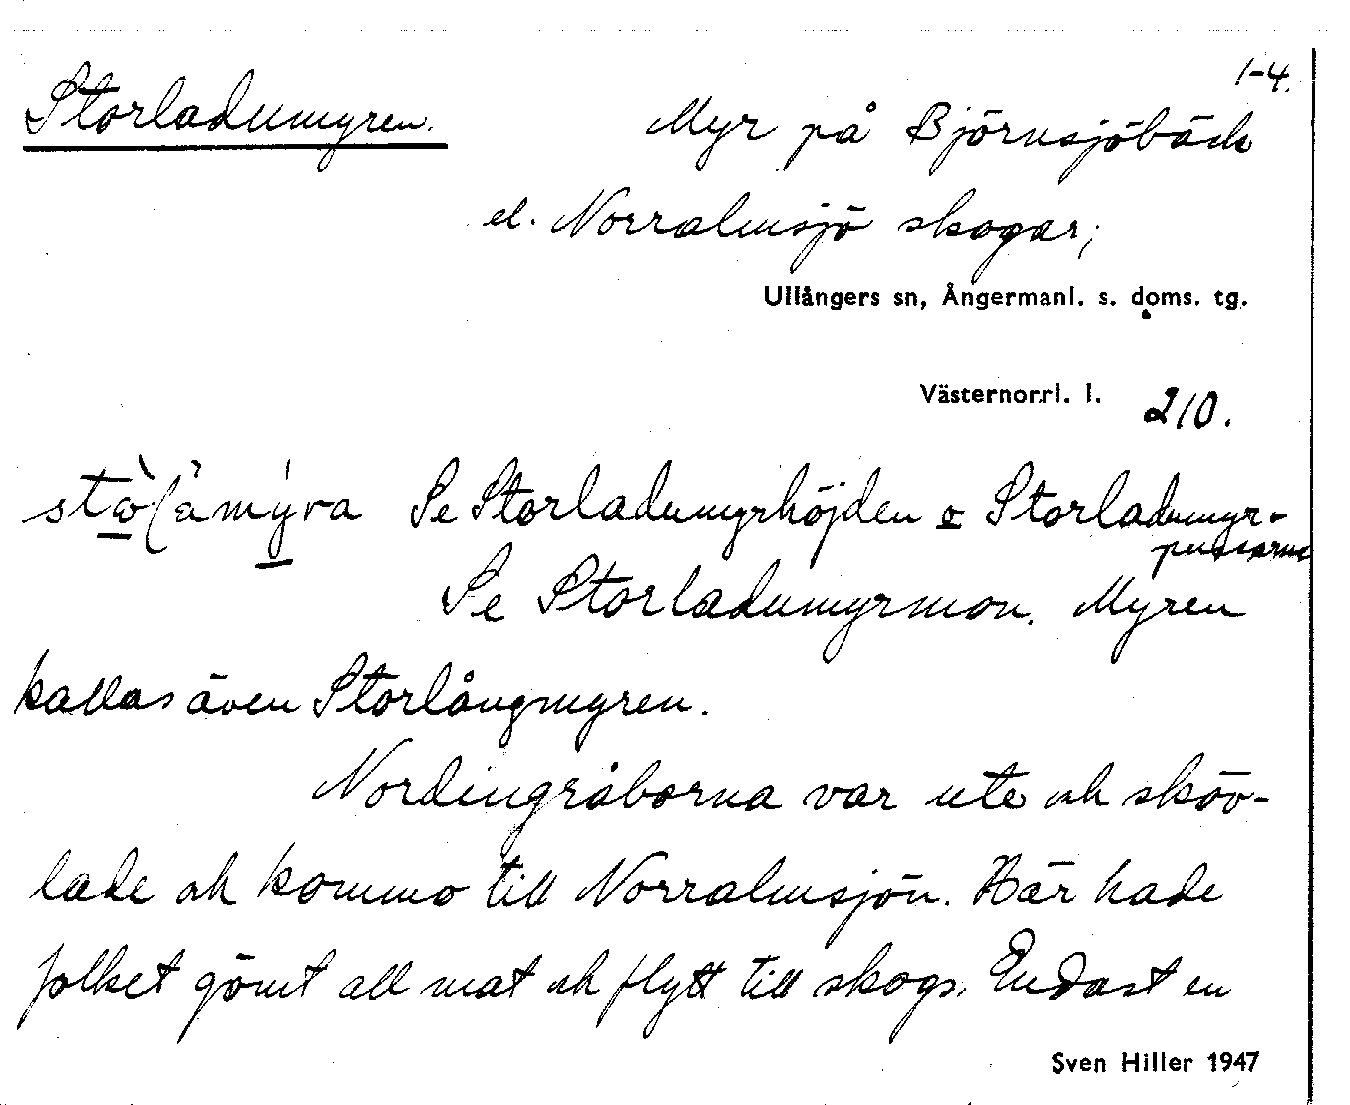 1-4.
Storladumyren. Myr på Björnsjöbäck
el. Norralmsjö skogar;
Ullångers sn, Ångermanl. s. doms. tg.
Västernorrl. l. 210.
Se Storladumyrhöjden o Storladumyr-
pussarna
Se Storladumyrmon. Myren
kallas även Storlångmyren.
Nordingråborna var ute och sköv-
lade och kommo till Norralmsjön. Här hade
folket gömt all mat och flytt till skogs. Endast en
Sven Hiller 1947